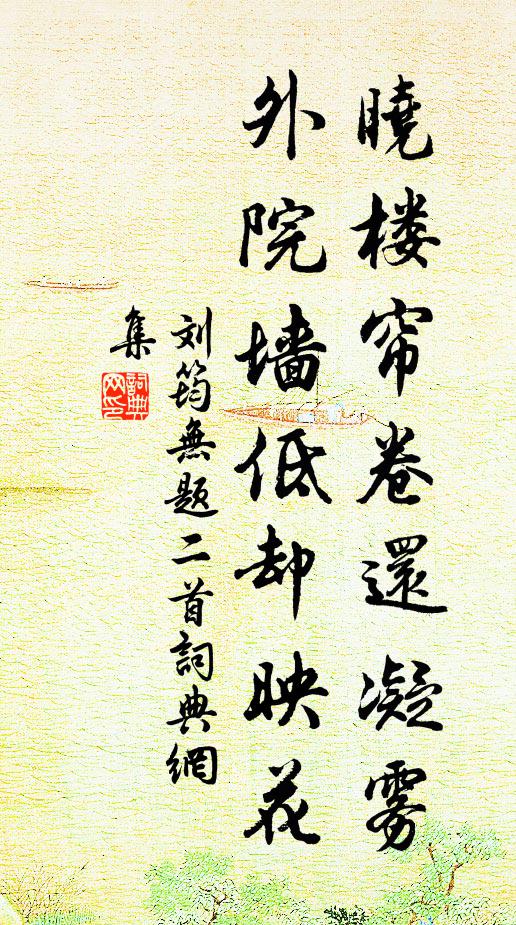 曉楼帘卷還凝雾
外院墙低却映花
刘筠無题二首詞典網
集
詞典
网印